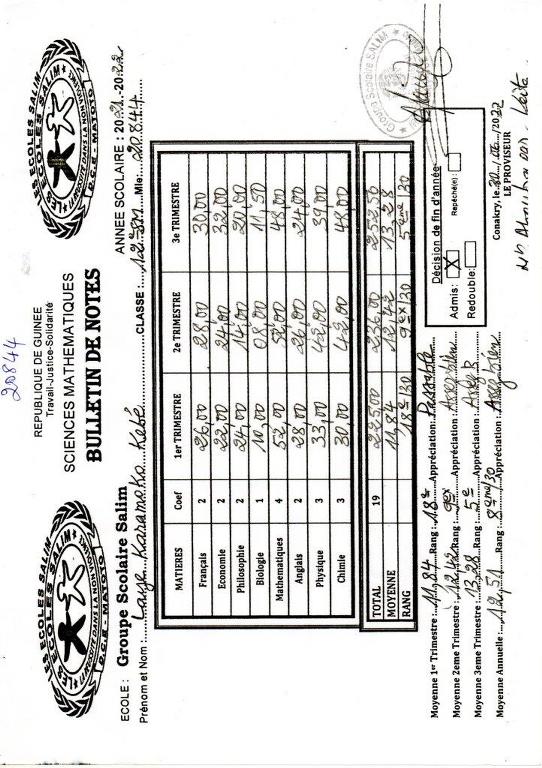 20844
REPUBLIQUE DE GUINEE
Travail-Justice-Solidarité
SCIENCES MATHEMATIQUES
BULLETIN DE NOTES
LES ECOLES SALIM
D.C.E - MATOTO
LES ECOLES SALIM
D.C.E - MATOTO
ECOLE : Groupe Scolaire Salim ANNEE SCOLAIRE : 2021-2022
Prénom et Nom : Laye Karamoko Kebé CLASSE : 12e SM Mle: 20844
MATIERES Coef 1er TRIMESTRE 2e TRIMESTRE 3e TRIMESTRE
Français 2 26,00 28,00 30,00
Economie 2 22,00 24,00 32,00
Philosophie 2 24,00 14,00 20,00
Biologie 1 10,00 08,00 11,50
Mathematiques 4 52,00 52,00 48,00
Anglais 2 28,00 26,00 24,00
Physique 3 33,00 42,00 39,00
Chimie 3 30,00 42,00 48,00
TOTAL 19 225,00 236,00 252,50
MOYENNE 11,84 12,42 13,28
RANG 18e/30 9ex/30 5eme/30
Moyenne 1er Trimestre : 11,84 Rang : 18e Appréciation : Passable
Moyenne 2eme Trimestre : 12,42 Rang : 9ex Appréciation : Assez bien
Moyenne 3eme Trimestre : 13,28 Rang : 5e Appréciation : Assez B
Moyenne Annuelle : 12,51 Rang : 8eme/30 Appréciation : Assez bien
Décision de fin d'année
Admis: X Repéché(e) :
Redouble:
Conakry, le 30/06/2022
LE PROVISEUR
Groupe Scolaire SALIM
Mr Aboubacar Keita